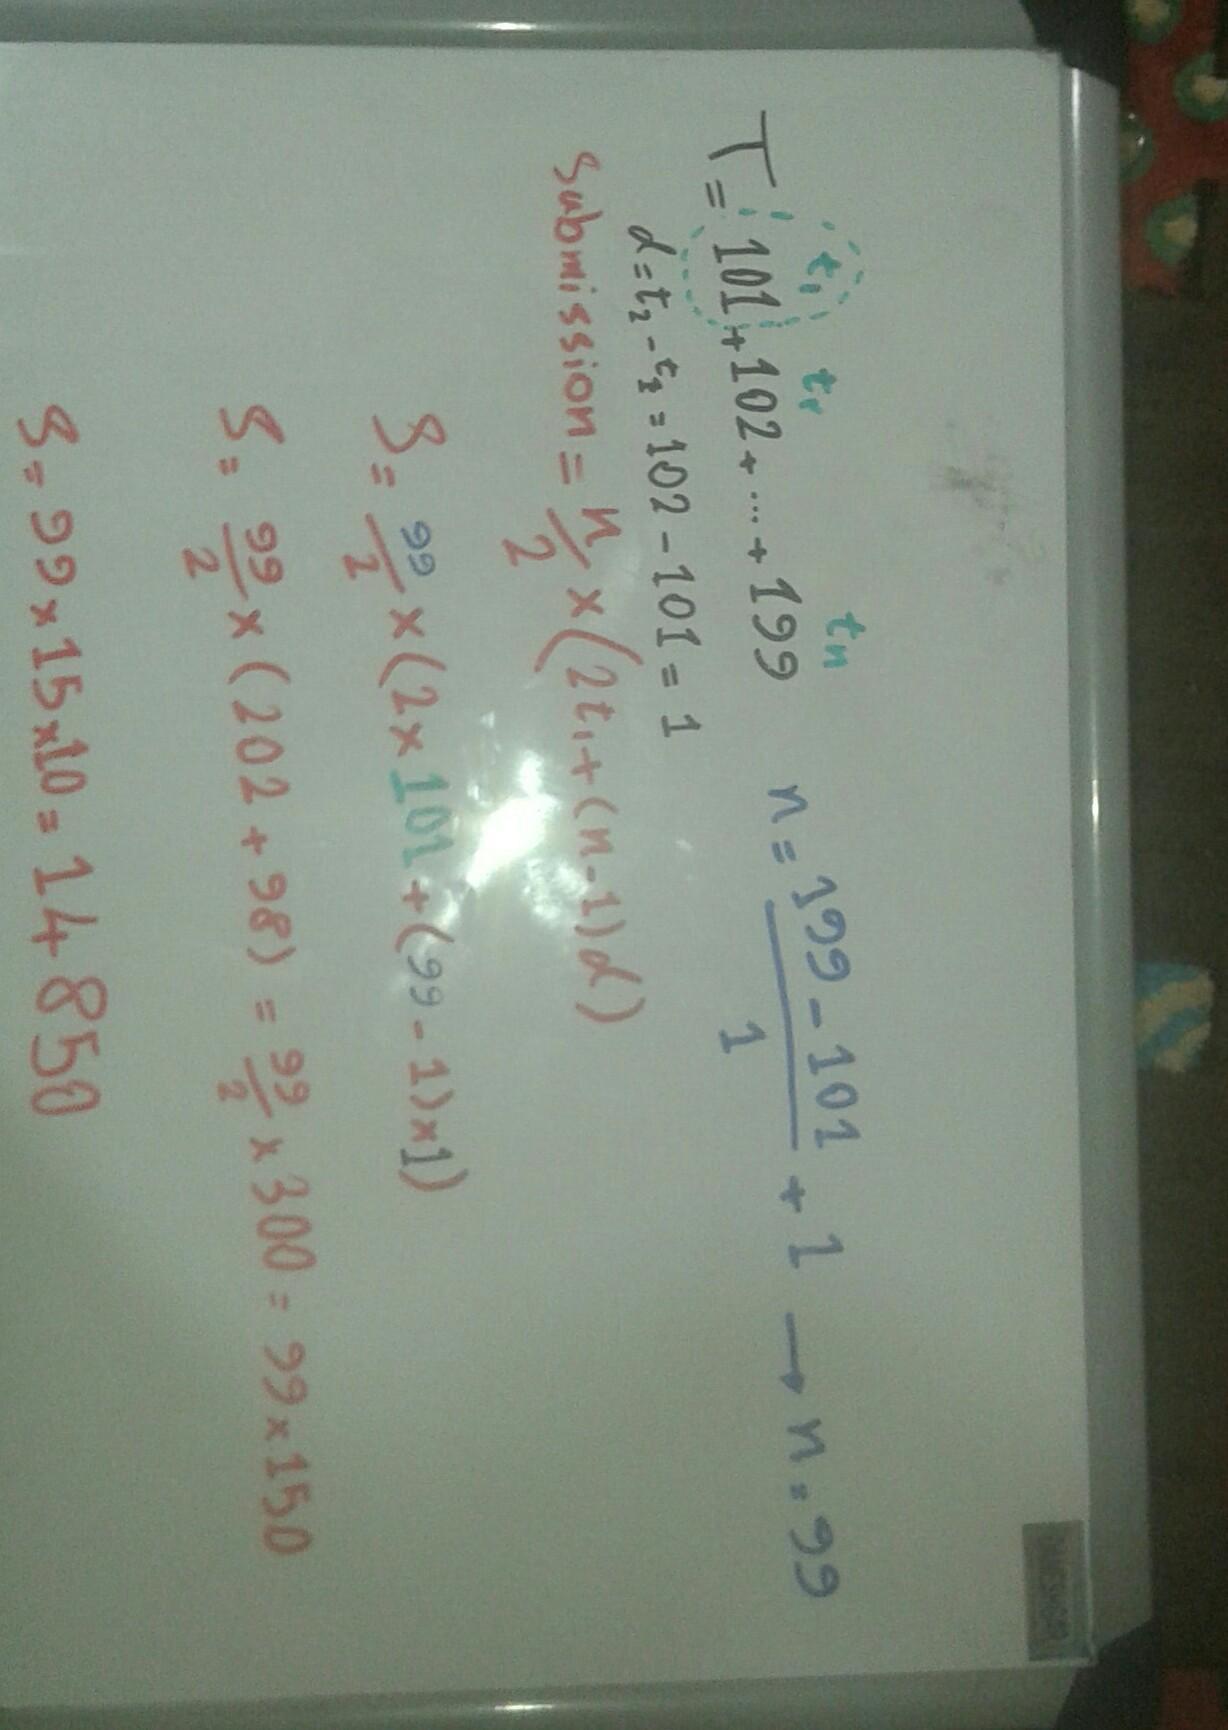 t₁ t₂ tₙ
T = 101 + 102 + ... + 199 n = 199 - 101 / 1 + 1 → n = 99
d = t₂ - t₁ = 102 - 101 = 1
Submission = n/2 × (2t₁ + (n - 1)d)
S = 99/2 × (2 × 101 + (99 - 1) × 1)
S = 99/2 × (202 + 98) = 99/2 × 300 = 99 × 150
S = 99 × 15 × 10 = 14850